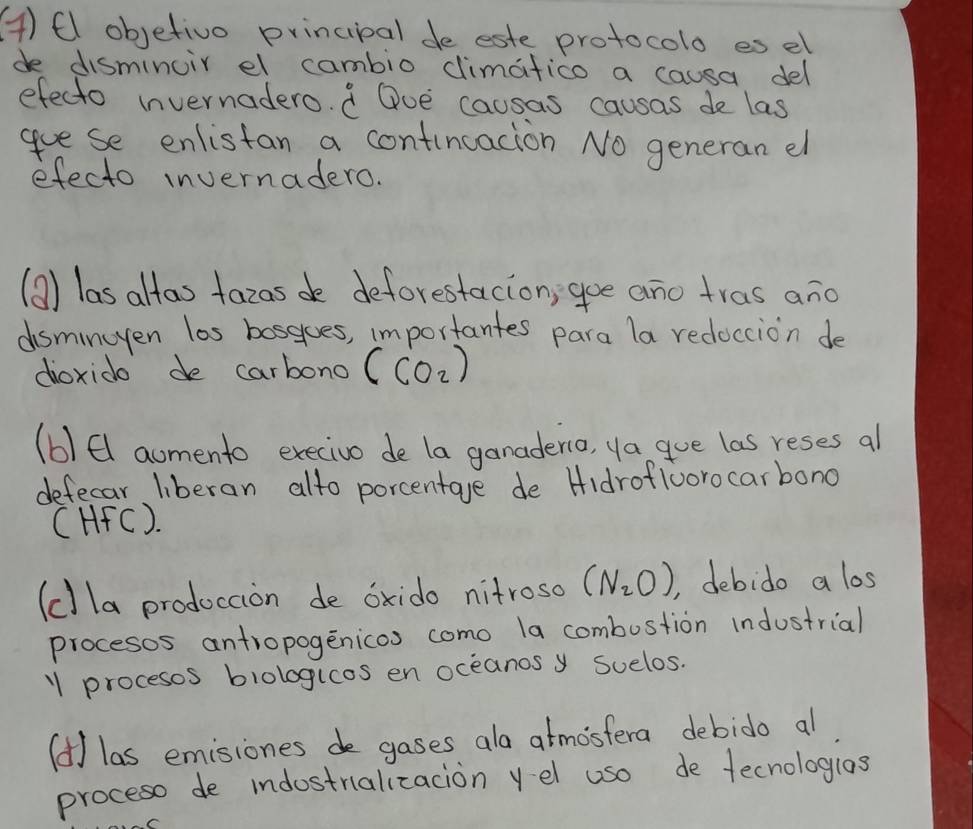 (7) El objetivo principal de este protocolo es el
de disminuir el cambio climático a causa del
efecto invernadero. ¿ Qué causas causas de las
que se enlistan a continuación NO generan el
efecto invernadero.
(a) las altas tazas de deforestación, que año tras año
disminuyen los bosques, importantes para la reducción de
dioxido de carbono (CO₂)
(b) El aumento execivo de la ganaderia, ya que las reses al
defecar liberan alto porcentaje de Hidrofluorocarbono
(HFC).
(c) la producción de óxido nitroso (N₂O), debido a los
procesos antropogénicos como la combustión industrial
y procesos biologicos en océanos y suelos.
(d) las emisiones de gases ala atmósfera debido al
proceso de industrialización y el uso de tecnologías